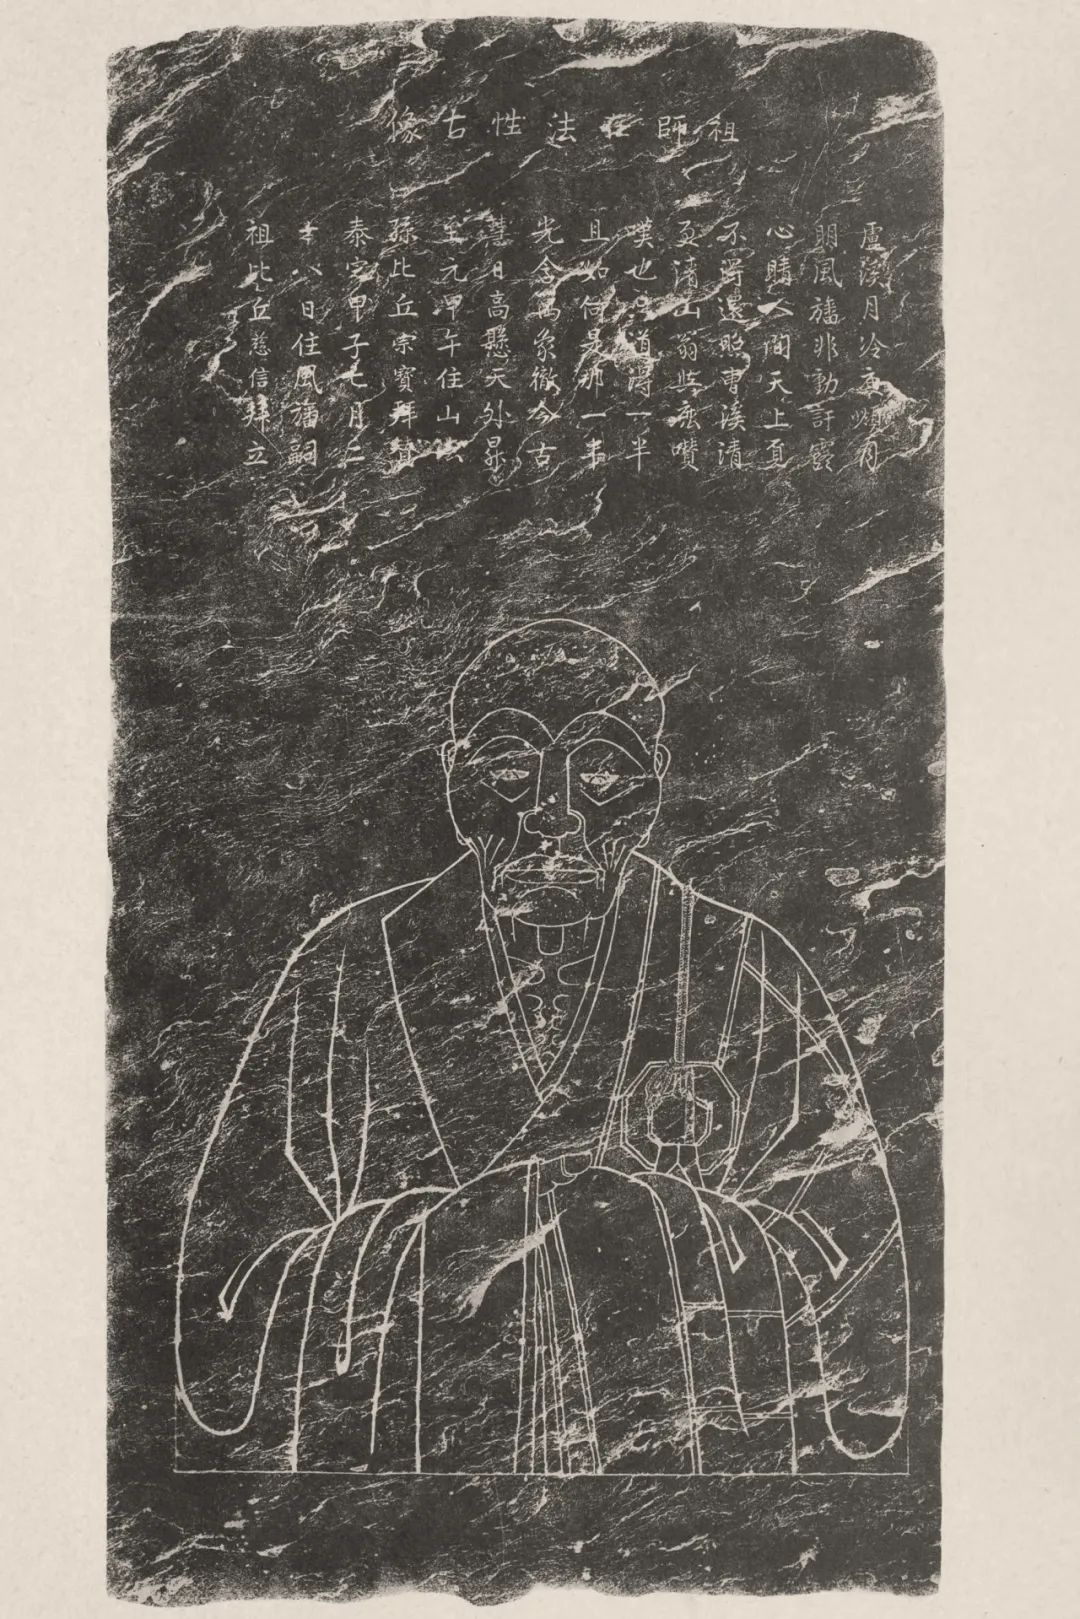 祖師在法性古像
盧溪月冷月
風旛非動
心睛人間天上覓
不得還照曹溪清
請山翁些讚
嘆也只道得一半
且如何是那一半
光含萬象徹今古
慧日高懸天外
至元甲午住山法
孫比丘宗寶拜贊
泰定甲子七月二
十八日住風旛嗣
祖比丘慈信拜立